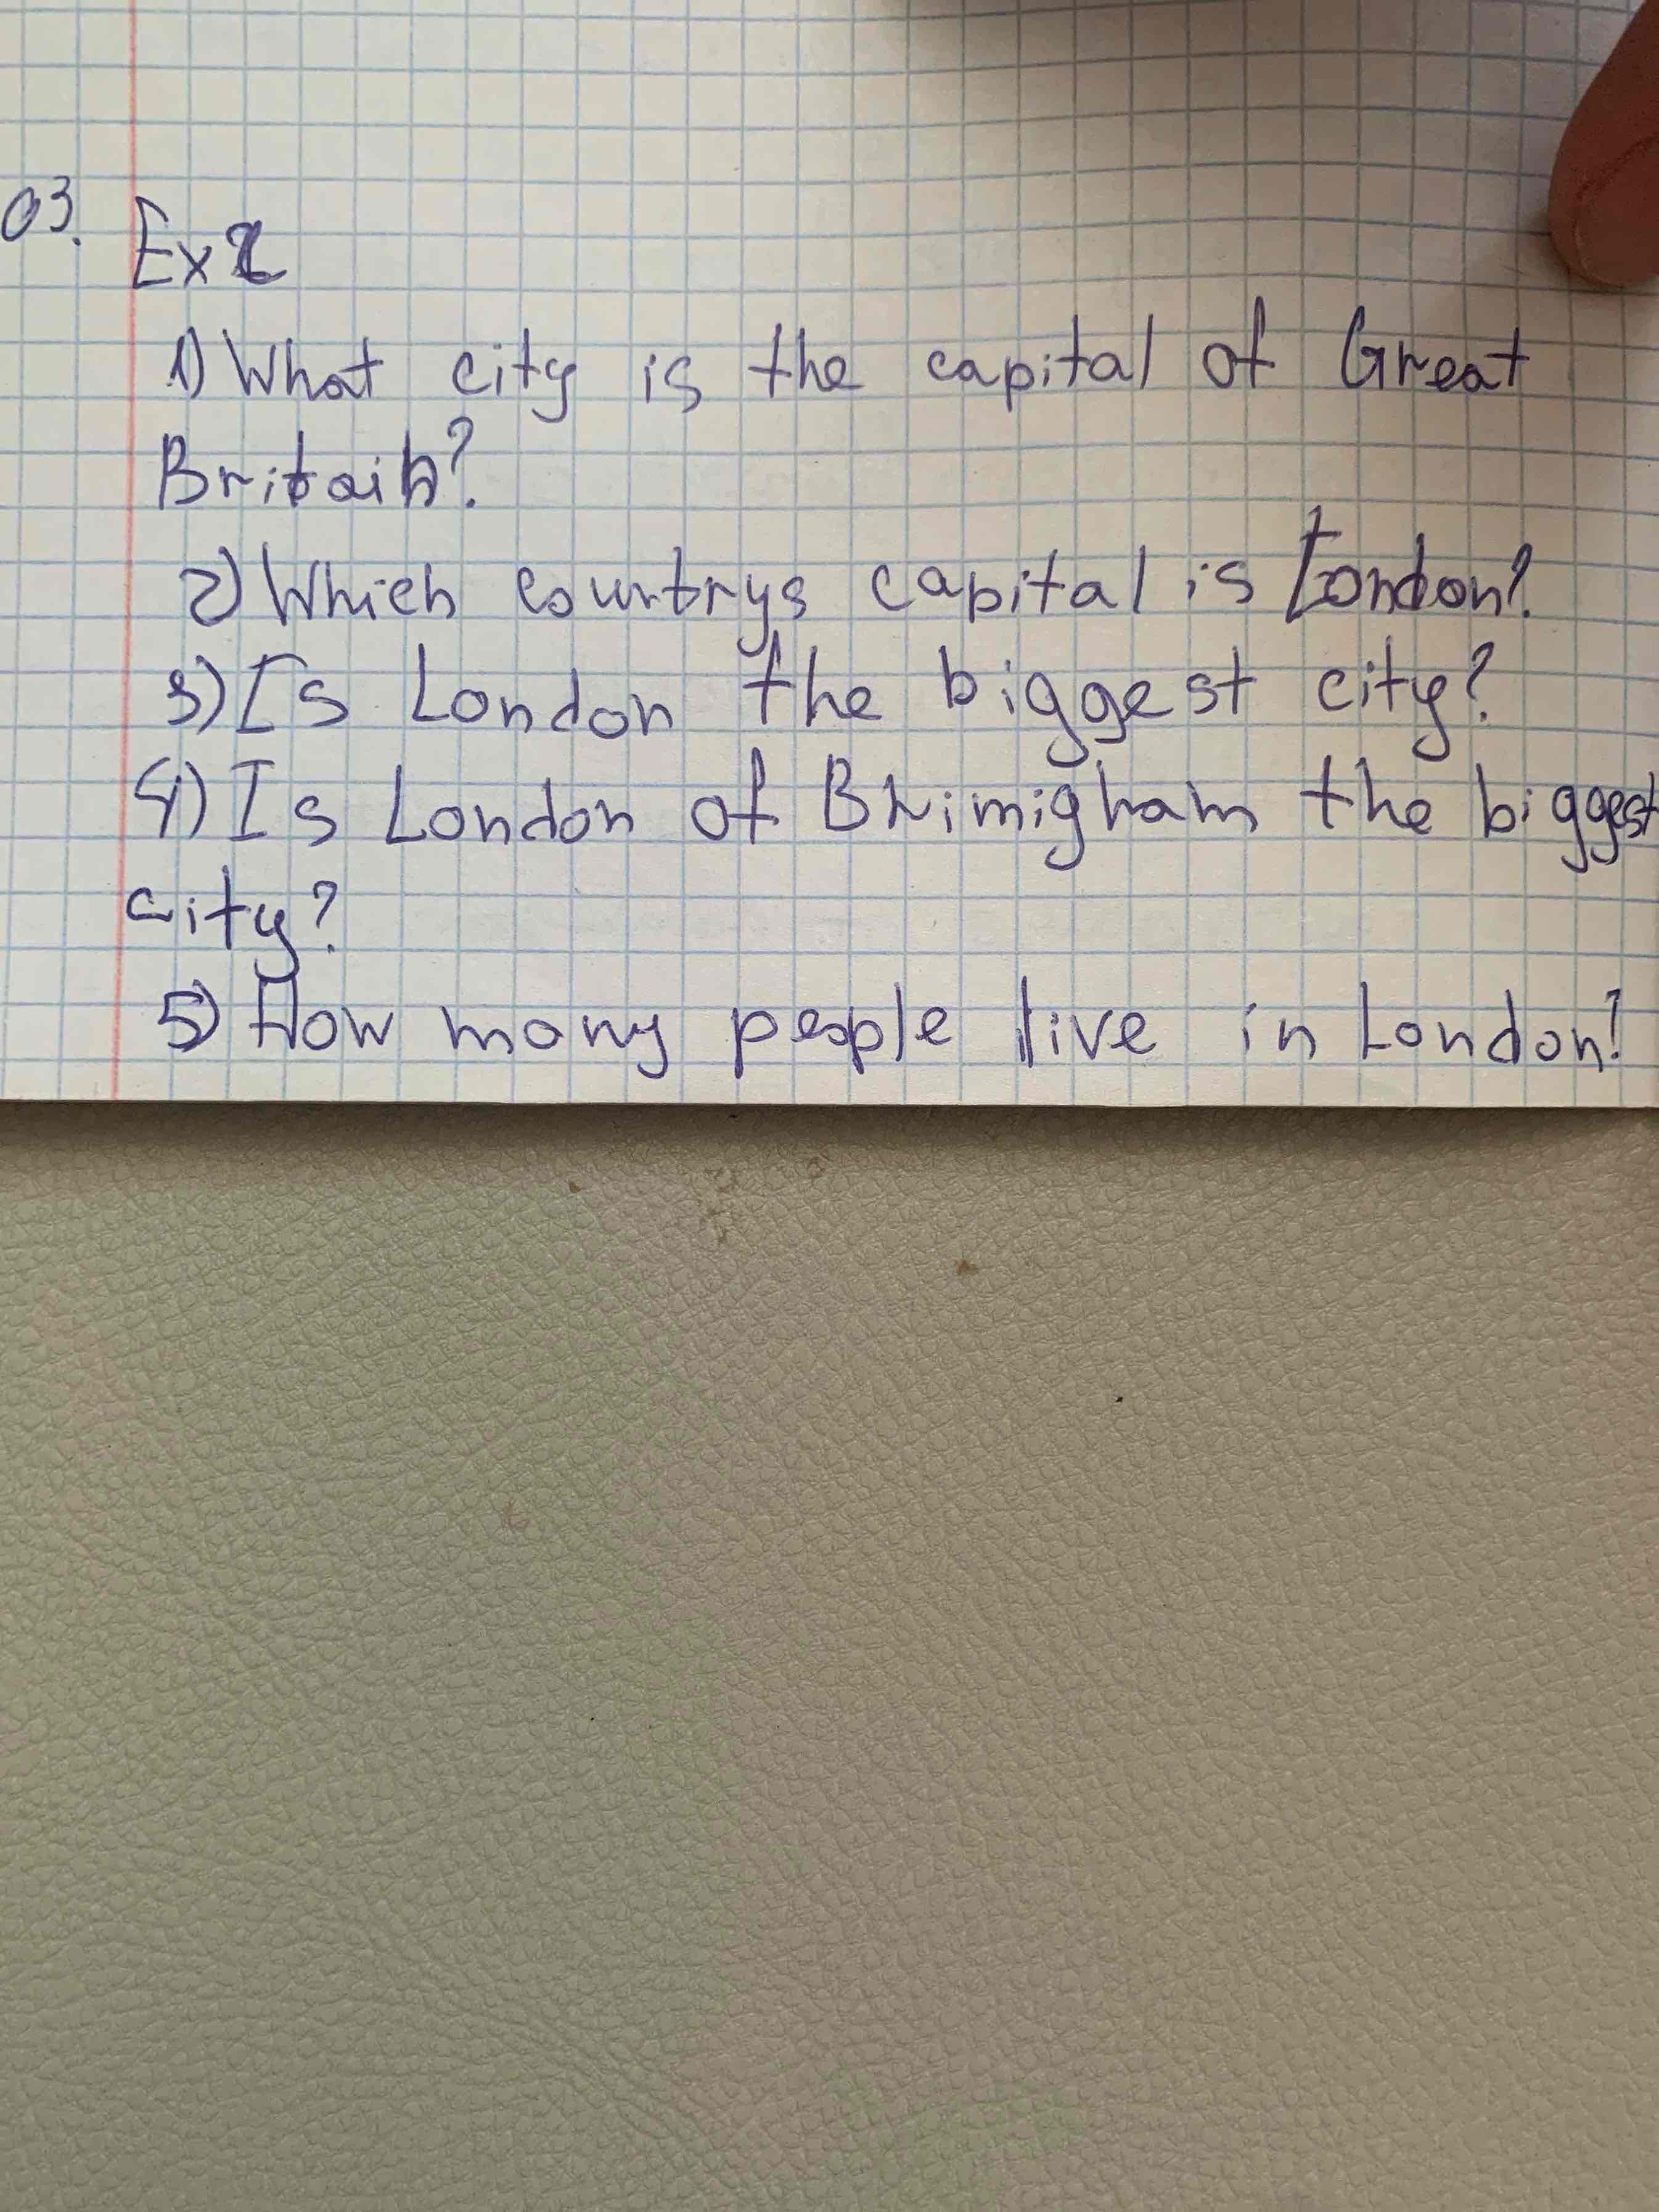 03.
Ex 2
1) What city is the capital of Great
Britain?
2) Which countrys capital is London?
3) Is London the biggest city?
4) Is London of Brimigham the biggest
city?
5) How many people live in London?